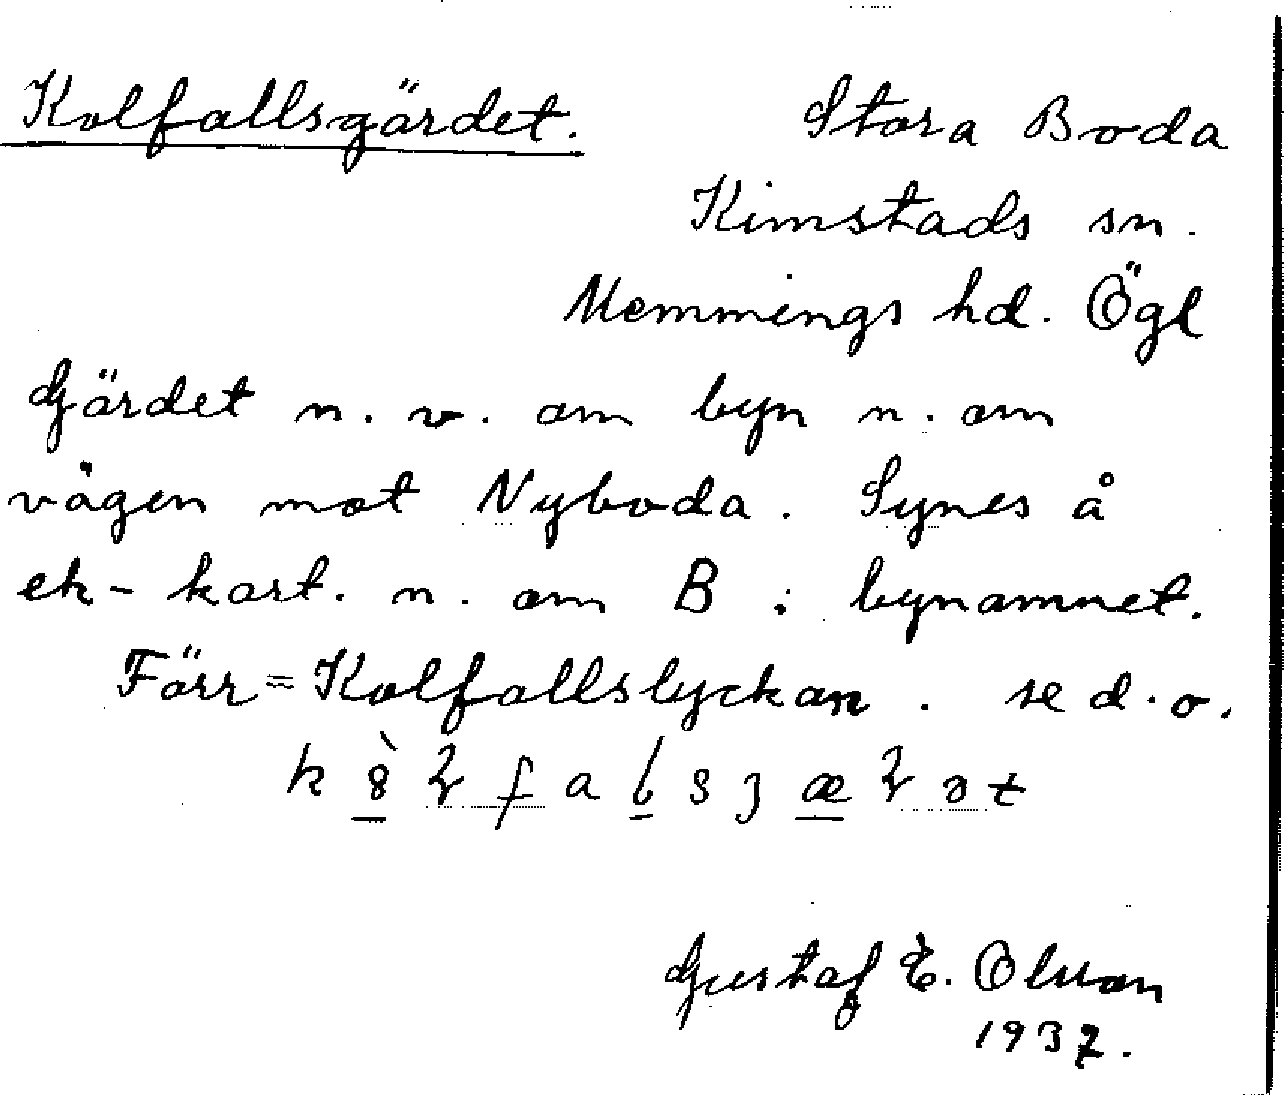 Kolfallsgärdet. Stora Boda
Kimstads sn.
Memmings hd. Ögl
Gärdet n. v. om byn n. om
vägen mot Nyboda. Synes å
ek-kart. n. om B i bynamnet.
Förr = Kolfallslyckan. se d. o.
Gustaf E. Olson
1937.